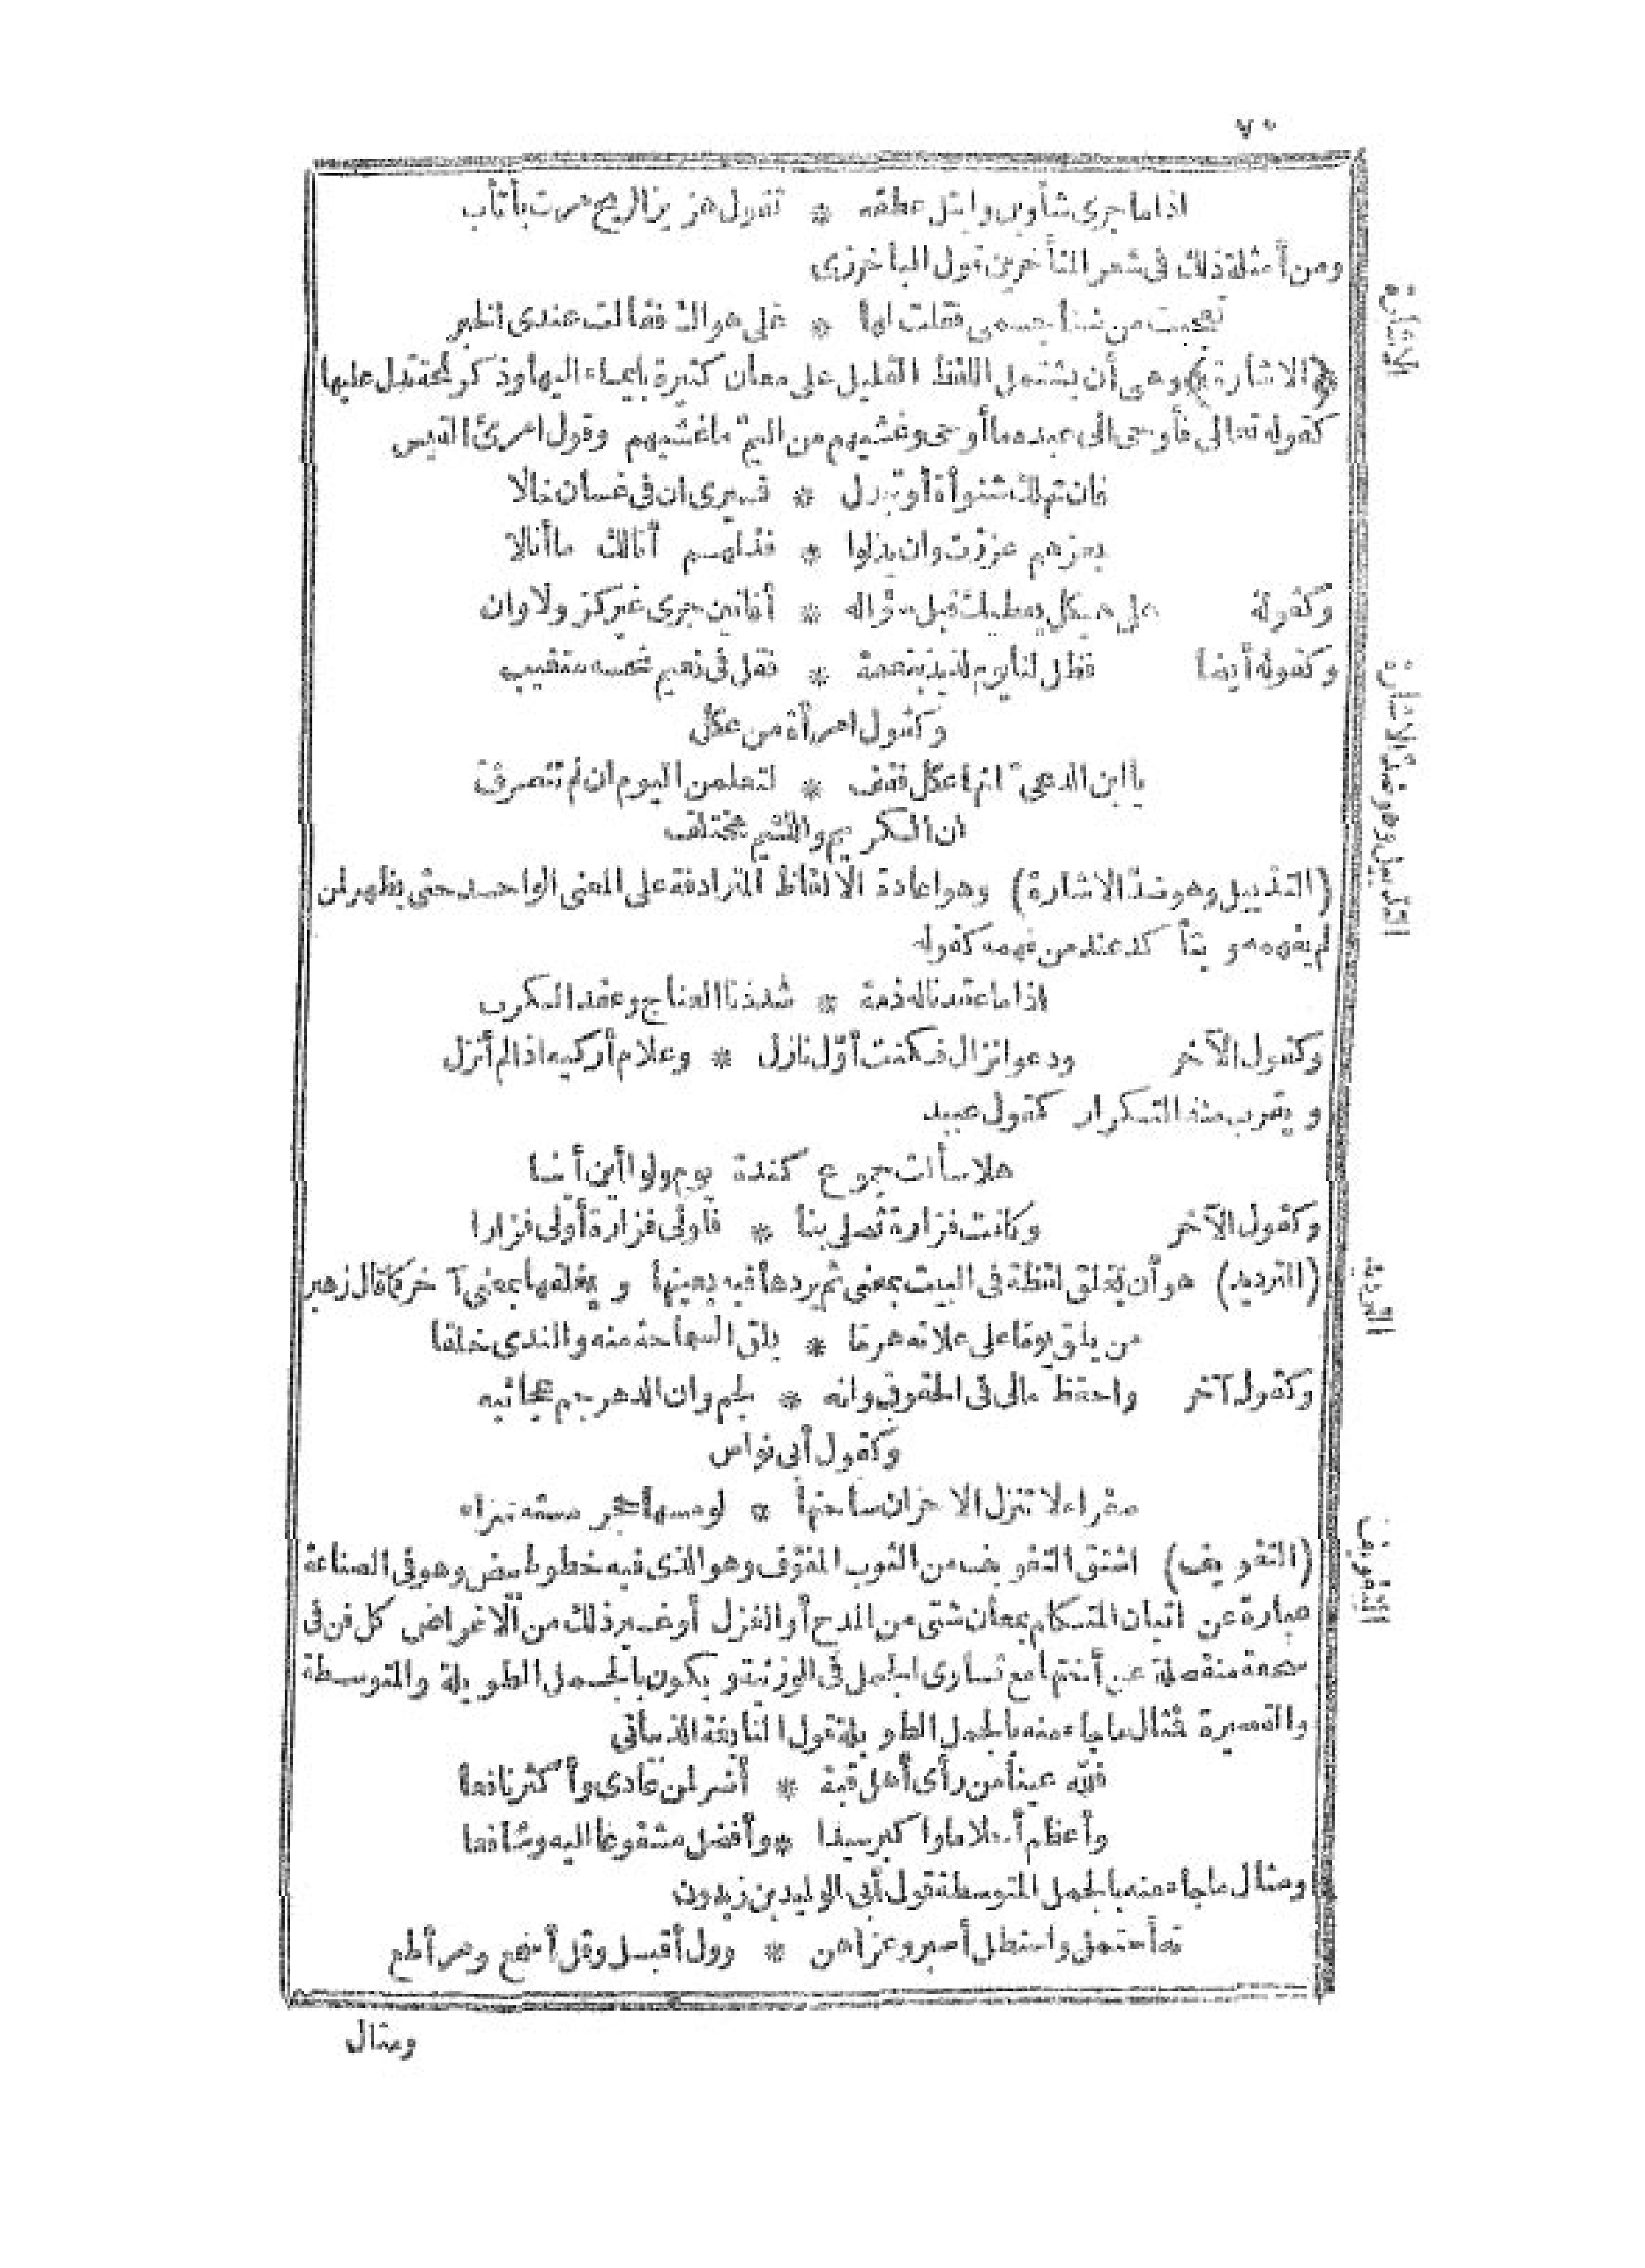 ٧٠
اذا ماجرى شأوين وابتل عطفه * تقول هزيز الريح مرت بأثأب
ومن أمثلة ذلك فى شعر المتأخرين قول الباخرزى
فقلت لها * على هواك فقالت عندى الخبر
﴿الاشارة﴾ وهى أن يشتمل اللفظ القليل على معان كثيرة بايماء اليها وذكر لمحة تدل عليها
كقوله تعالى فأوحى الى عبده ما أوحى وغشيهم من اليمّ ما غشيهم وقول امرئ القيس
فان تهلك شنوأة أو تبدل * فسيرى ان فى غسان خالا
بعزهم عززت وان يذلوا * فذلهم أنالك ما أنالا
وكقوله على هيكل يعطيك قبل سؤاله * أفانين جرى غير كز ولا وان
وكقوله أيضا فظل لنا يوم لذيذ بنعمة * فقل فى نعيم نحسه متغيب
وكقول امرأة من عكل
يا ابن الدعىّ انها عكل فقف * لتعلمن اليوم ان لم تنصرف
ان الكريم واللئيم مختلف
(التذييل وهو ضدّ الاشارة) وهو اعادة الالفاظ المترادفة على المعنى الواحد حتى يظهر لمن
لم يفهمه ويتأكد عند من فهمه كقوله
اذا ما عقدنا له ذمة * شددنا العناج وعقد الكرب
وكقول الآخر ودعوا نزال فكنت أوّل نازل * وعلام أركبه اذا لم أنزل
ويقرب منه التكرار كقول عبيد
هلا سألت جموع كندة يوم ولوا أين أينا
وكقول الآخر وكانت فزارة تصلى بنا * فأولى فزارة أولى فزارا
(الترديد) هو أن تعلق لفظة فى البيت بمعنى ثم يردها فيه بعينها ويعلقها بمعنى آخر كما قال زهير
من يلق يوما على علاته هرما * يلق السماحة منه والندى خلقا
وكقول آخر واحفظ مالى فى الحقوق وانه * لجم وان الدهر جم عجائبه
وكقول أبى نواس
صفراء لا تنزل الاحزان ساحتها * لو مسها حجر مسته سراء
(التفويف) اشتق التفويف من الثوب المفوّف وهو الذى فيه خطوط بيض وهو فى الصناعة
عبارة عن اتيان المتكلم بمعان شتى من المدح أو الغزل أو غير ذلك من الاغراض كل فن فى
سجعة منفصلة عن أختها مع تساوى الجمل فى الوزنية ويكون بالجمل الطويلة والمتوسطة
والقصيرة فمثال ما جاء منه بالجمل الطويلة قول النابغة الذبيانى
فلله عينا من رأى أهل قبة * أضر لمن عادى وأكثر نافعا
وأعظم أحلاما وأكبر سيدا * وأفضل مشفوعا اليه وشافعا
ومثال ما جاء منه بالجمل المتوسطة قول أبى الوليد بن زيدون
ته أحتمل واستطل أصبر وعز أهن * وول أقبل وقل أسمع ومر أطع
ومثال
الاشارة
التذييل وهو ضد الاشارة
الترديد
التفويف